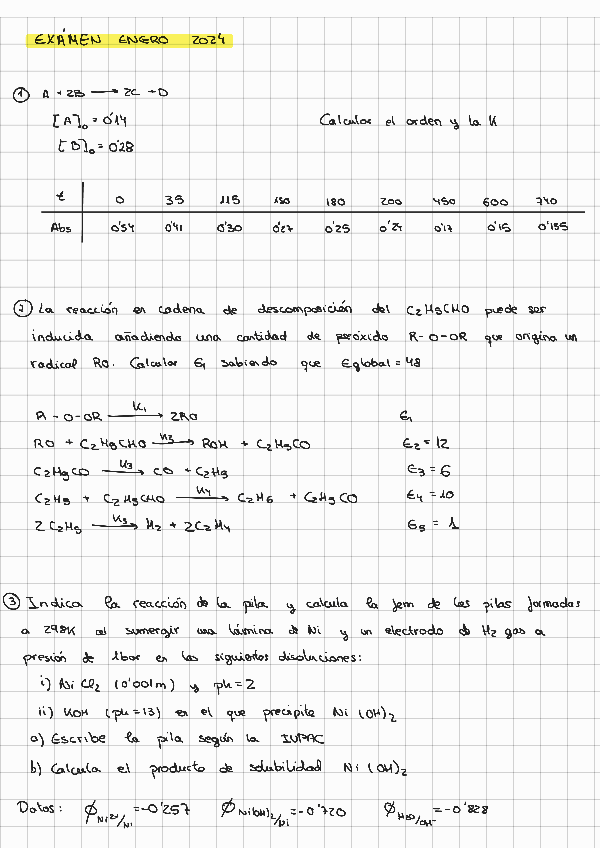 EXÁMEN ENERO 2024
① A + 2B ⟶ 2C + D
[A]₀ = 0'14 Calcular el orden y la K
[B]₀ = 0'28
t 0 35 115 150 180 200 450 600 740
Abs 0'54 0'41 0'30 0'27 0'25 0'24 0'17 0'15 0'155
② La reacción en cadena de descomposición del C2H5CHO puede ser
inducida añadiendo una cantidad de peróxido R-O-OR que origina un
radical RO. Calcular E₁ sabiendo que Eglobal = 48
R - O-OR ⟶ K₁ 2RO E₁
RO + C2H5CHO ⟶ K₂ ROH + C2H5CO E₂ = 12
C2H5CO ⟶ K₃ CO + C2H5 E₃ = 6
C2H5 + C2H5CHO ⟶ K₄ C2H6 + C2H5CO E₄ = 10
2 C2H5 ⟶ K₅ H2 + 2C2H4 E₅ = 1
③ Indica la reacción de la pila y calcula la fem de las pilas formadas
a 298K al sumergir una lámina de Ni y un electrodo de H2 gas a
presión de 1bar en las siguientes disoluciones:
i) NiCl2 (0'001m) y pH = 2
ii) KOH (pH = 13) en el que precipite Ni(OH)2
a) Escribe la pila según la IUPAC
b) Calcula el producto de solubilidad Ni(OH)2
Datos: ϕ Ni²⁺/Ni = -0'257 ϕ Ni(OH)2/Ni = -0'720 ϕ H2O/OH⁻ = -0'828